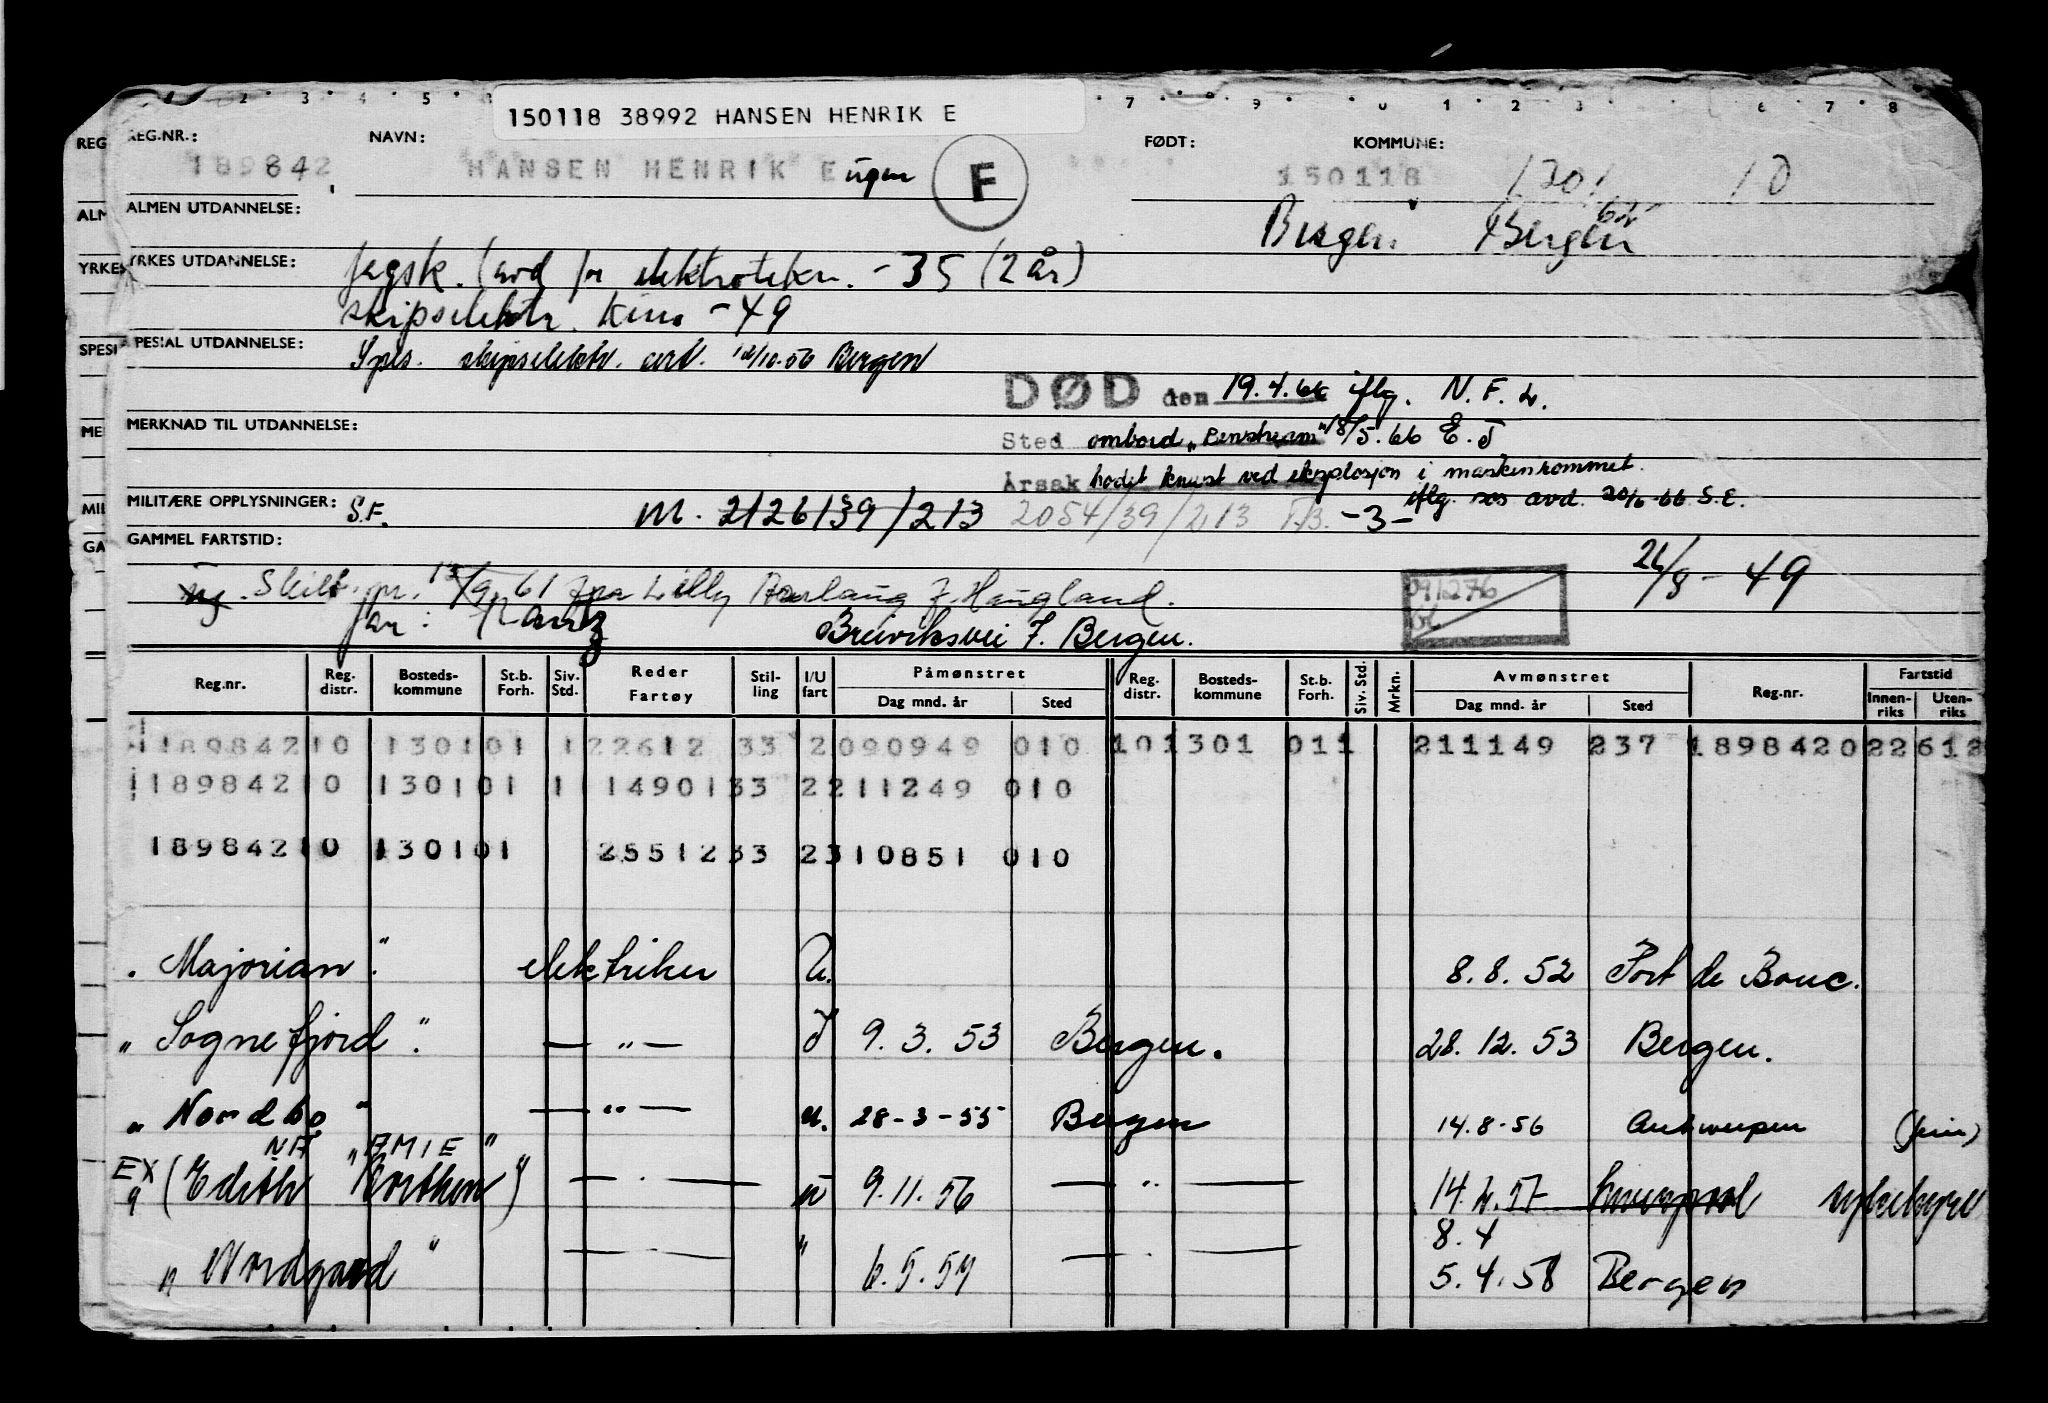 150118 38992 HANSEN HENRIK E
REG.NR.: NAVN: FØDT: KOMMUNE:
189842 HANSEN HENRIK Eugen F 150118 1301 10
ALMEN UTDANNELSE: Bergen Bergen
YRKES UTDANNELSE: fagsk. (avd for elektrotekn. -35 (2 år)
skipselektr. Kurs -49
SPESIAL UTDANNELSE: Spes. skipselektr. avd. 12/10.56 Bergen
DØD den 19.4.66 iflg. N.F.L.
MERKNAD TIL UTDANNELSE: Sted ombord 18/5.66 E.J
Årsak hodet knust ved eksplosjon i maskinrommet.
iflg. sos avd. 20/6-66 S.E.
MILITÆRE OPPLYSNINGER: S.F. M. 2126/39/213 2054/39/213 -3-
GAMMEL FARTSTID:
26/8-49
Skilt. pr. 13/9-61 fra Lilly Aaslaug f. Haugland.
far: Frantz Breiviksvei 7. Bergen.
091276
Reg.nr. Reg. distr. Bosteds-kommune St.b. Forh. Siv. Std. Reder Fartøy Stil-ling I/U fart Påmønstret Dag mnd. år Sted Reg. distr. Bosteds-kommune St.b. Forh. Siv. Std. Mrkn. Avmønstret Dag mnd. år Sted Reg.nr. Fartstid Innen-riks Uten-riks
18984210 130101 1 22612 33 2 090949 010 10 1301 011 211149 237 1898420 22612
18984210 130101 1 1490133 2211249 010
18984210 130101 2551233 2310851 010
" Majorian " elektriker U. 8.8.52 Port de Bouc.
" Sognefjord " — " — I 9.3.53 Bergen. 28.12.53 Bergen.
" Nordbo " — " — u. 28-3-55 Bergen 14.8-56 Antwerpen
NÅ "AMIE"
EX " (Edith Borthen") — " — u 9.11.56 — " — 14.4.57 Liverpool
8.4
" Nordgard " — " 6.5.57 — " — 5.4.58 Bergen